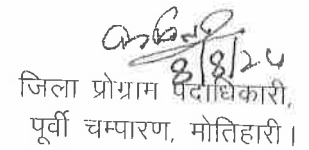 8/8/24
जिला प्रोग्राम पदाधिकारी,
पूर्वी चम्पारण, मोतिहारी।